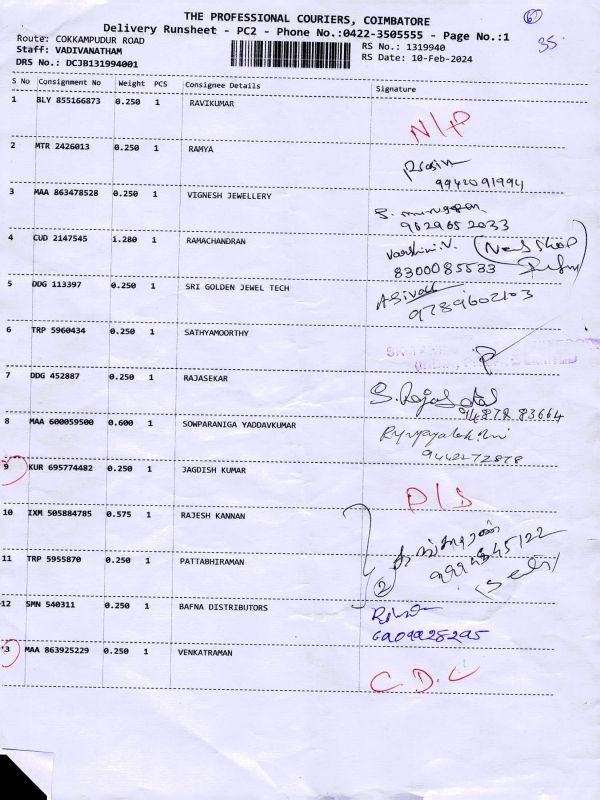 THE PROFESSIONAL COURIERS, COIMBATORE
Delivery Runsheet - PC2 - Phone No.:0422-3505555 - Page No.:1
35
Route: COKKAMPUDUR ROAD
RS No.: 1319940
Staff: VADIVANATHAM
RS Date: 10-Feb-2024
DRS No.: DCJB131994001
S No Consignment No Weight PCS Consignee Details Signature
1 BLY 855166873 0.250 1 RAVIKUMAR
N/P
2 MTR 2426013 0.250 1 RAMYA
9942091994
3 MAA 863478528 0.250 1 VIGNESH JEWELLERY
S. murugesan
9629652033
4 CUD 2147545 1.280 1 RAMACHANDRAN
Varshini.V.
8300085533
5 DDG 113397 0.250 1 SRI GOLDEN JEWEL TECH
9789602103
6 TRP 5960434 0.250 1 SATHYAMOORTHY
P
7 DDG 452887 0.250 1 RAJASEKAR
94878 83664
8 MAA 600059500 0.600 1 SOWPARANIGA YADDAVKUMAR
9442272878
9 KUR 695774482 0.250 1 JAGDISH KUMAR
D/S
10 IXM 505884785 0.575 1 RAJESH KANNAN
9994845122
11 TRP 5955870 0.250 1 PATTABHIRAMAN
2
12 SMN 540311 0.250 1 BAFNA DISTRIBUTORS
13 MAA 863925229 0.250 1 VENKATRAMAN
C.D.C